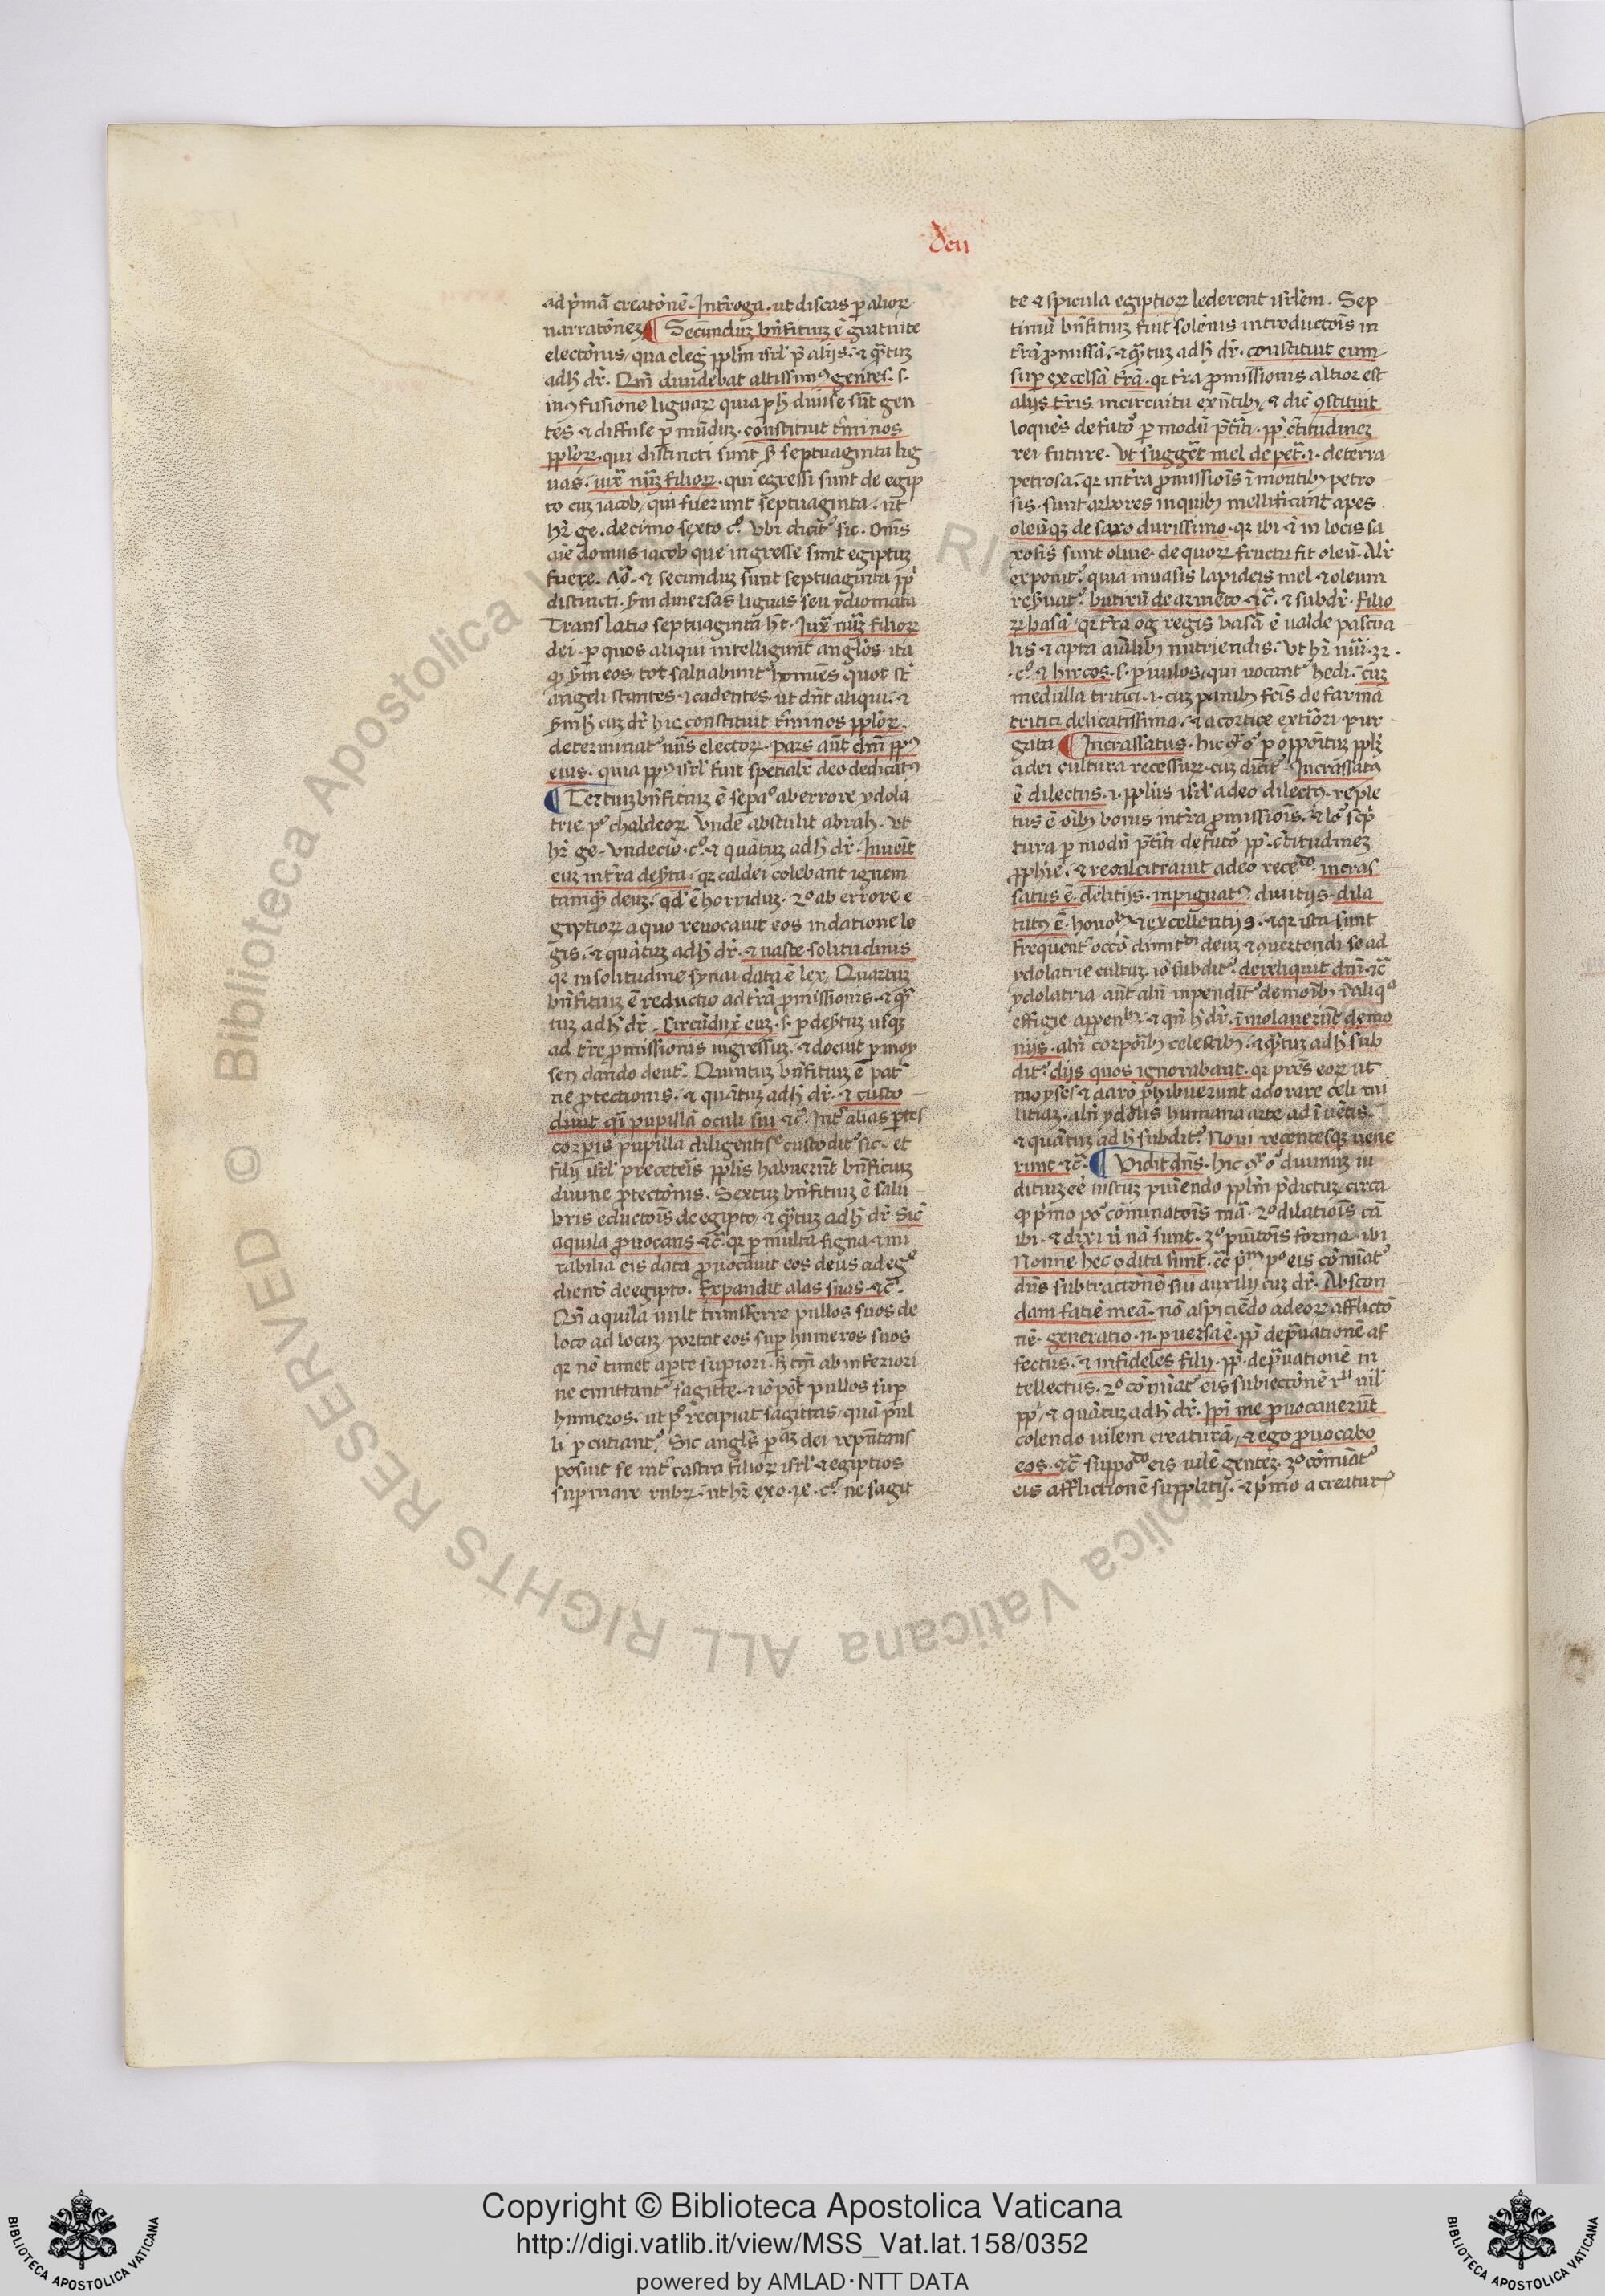 Deu
ad p̃mã creatõnẽ. Int̃roga. ut discas ꝑ alioꝝ
narratõnez ¶ Secunduz bñfituiz ẽ gratuite
electõnis, qua eleg̃ pplm̃ isrl̃ p̃ alijs. ⁊ q̃tuz
ad h̃ dr̃. Qñ diuidebat altissimꝰ gentes. s.
in ꝯfusione liguaꝝ quia ꝑ h̃ diuise sũt gen
tes ⁊ diffuse ꝑ mũduz. constituit t̃minos
ppl̃oꝝ. qui distincti sunt ẜ septuaginta lig
uas. iux̃ nũz filioꝝ. qui egressi sunt de egip
to cuz iacob, qui fuerunt septuaginta. ut
hr̃ ge. decimo sexto cͦ. Vbi dicit̃ sic. Om̃s
aĩe domus iacob que ingresse sunt egiptuz
fuere. ⁊ secunduz sunt septuaginta pp̃
distincti. ẜm diuersas liguas seu ydiomata
Translatio septuaginta ht. Iux̃ nũz filioꝝ
dei. ꝑ quos aliqui intelligunt angl̃os. ita
ꝙ ẜm eos, tot saluabunt̃ homĩes quot st̃
angeli stantes ⁊ cadentes. ut dñt aliqui. ⁊
ẜm h̃ cuz dr̃ hic. constituit t̃minos ppl̃oꝝ.
determinat̃ nũs electoꝝ. pars aũt dñi ppꝰ
eius. quia ppꝰ isrl̃ fuit spetialr̃ deo dedicatꝰ
¶ Tertuiz bñfituiz ẽ sepaͦ ab errore ydola
trie pͦ chaldeoꝝ Vnde abstulit abrah. Vt
hr̃ ge. Vndecĩo. cͦ. ⁊ quãtuz ad h̃ dr̃. Inueĩt
euz in t̃ra deẜta. qꝛ caldei colebant ignem
tamq̃ deuz. qd̃ ẽ horriduz. 2ͦ ab errore e
giptioꝝ a quo reuocauit eos in datione le
gis. ⁊ quãtuz ad h̃ dr̃. ⁊ uaste solitudinis
qꝛ in solitudine synai data ẽ lex. Quartuz
bñfituiz ẽ reductio ad t̃rã ꝓmissionis. ⁊ q̃
tuz ad h̃ dr̃. Circũdux̃ euz. s. ꝑ deẜtuz usqꝫ
ad t̃re ꝓmissionis ingressuz. ⁊ docuit ꝑ moy
sen dando deut̃. Quintuz bñfituiz ẽ pat̃
ne ꝓtectionis. ⁊ quãtuz ad h̃ dr̃. ⁊ custo
diuit q̃i pupillã oculi sui ⁊c̃. Int̃ alias ꝑtes
corꝑis pupilla diligentiͦ custodit̃. sic. et
filij isrl̃ pre ceteris ppl̃is habuerũt bñficiuz
diuine ꝓtectõnis. Sextuz bñfituiz ẽ salu
bris eductõis de egipto, ⁊ q̃tuz ad h̃ dr̃ Sic̃
aquila ꝓuocans ⁊c̃. qꝛ ꝑ multa signa ⁊ mi
rabilia eis data ꝓuocauit eos deus ad eg̃
diend̃ de egipto. Expandit alas suas. ⁊c̃.
Qñ aquila uult transferre pullos suos de
loco ad locuz. portat eos suꝑ humeros suos
qꝛ nõ timet a ꝑte suꝑiori. ẜ tm̃ ab inferiori
ne emittant̃ sagitte. ⁊ iõ pot̃ pullos suꝑ
humeros. ut pͦ recipiat sagittas, quã pul
li ꝑcutiant̃. Sic angl̃s ꝑãz dei rep̃ntans
posuit se int̃ castra filioꝝ isrl̃ ⁊ egiptios
suꝑ mare rubꝝ. ut hr̃ exo. cͦ. ne sagit
te ⁊ spicula egiptioꝝ lederent isrl̃em. Sep
timũ bñfituiz fuit solẽnis introductõis in
t̃rã ꝓmissã. ⁊ q̃tuz ad h̃ dr̃. constituit eum
suꝑ excelsã t̃rã. qꝛ t̃ra ꝓmissionis altior est
alijs t̃ris in circuitu exñtibꝫ, ⁊ dic̃ ꝯstituit
loquẽs de fut̃o ꝑ modũ p̃t̃iti. pp̃ c̃titudinez
rei future. Vt sugg̃et mel de pet̃. i. de terra
petrosa. qꝛ in t̃ra ꝓmissiõis ĩ montibꝫ petro
sis. sunt arbores in quibꝫ mellificant apes.
oleũqꝫ de saxo durissimo. qꝛ ibi ⁊ in locis sa
xosis sunt oliue. de quoꝝ fructu fit oleũ. Alr̃
exponit̃. quia in uasis lapideis mel ⁊ oleum
reẜuat̃. butirũ de armẽto ⁊c̃. ⁊ subdr̃. filio
ꝝ basã. qꝛ t̃ra og regis basã ẽ ualde pascua
lis ⁊ apta aĩalibꝫ nutriendis. Vt hr̃ nũi. 32.
.cͦ. ⁊ hircos. s. ꝑuulos, qui uocant̃ hedi. cuz
medulla tritici. i. cuz panibꝫ fc̃is de farina
tritici delicatissima. ⁊ a cortice ext̃iori. pur
gata ¶ Incrassatus. hic ꝯ̃ͦ põ oppõituz ppl̃i
a dei cultura recessuꝝ. cuz dicit̃. Incrassatꝰ
ẽ dilectus. i. ppl̃us isrl̃ a deo dilectꝰ. reple
tus ẽ oĩbꝫ bonis in t̃ra ꝓmissiõis. ⁊ lõ sc̃p̃
tura ꝑ modũ p̃t̃iti de fut̃o pp̃. c̃titudinez
ꝓphie. ⁊ recalcitrauit a deo recedͦ. incras
satus ẽ. delitijs. inpiguatꝰ. diuitijs. dila
tatꝰ ẽ. honõbꝫ ⁊ excellentijs. ⁊ qꝛ ista sunt
frequent̃ occõ dimittd̃ deuz ⁊ ꝯuertendi se ad
ydolatrie cultuz. iõ subdit̃. dereliquit dñm. ⁊c̃
ydolatria aũt alr̃ inpendit̃ demoĩbꝫ ĩ aliqͣ
effigie appen̄bꝫ. ⁊ qñ h̃ dr̃. ĩmolauerũt demo
nijs. alr̃ corpoĩbꝫ celestibꝫ. ⁊ q̃tuz ad h̃ sub
dit̃. dijs quos ignorabant. qꝛ pr̃es eoꝝ ut
moyses ⁊ aarõ ꝓhibuerunt adorare celi mi
litiaz. alr̃ ydolis humana arte adĩuẽtis.
⁊ quãtuz ad h̃ subdit̃. Noui recentesqꝫ uene
runt ⁊c̃. ¶ Vidit dñs. hic ꝯ̃ͦ põ diuinuz iu
dituiz eẽ iustuz puniendo pplm̃ p̃dictuz, circa
qͦ p̃mo põ cõminatõis mã. 2ͦ dilatiõis cã
ibi. ⁊ dixi ũ nã sunt. 3ͦ puñtõis forma. ibi
Nonne hec ꝯdita sunt. c̃c p̃m põ eis cõmĩat̃
dñs subtractionẽ sui auxilij cuz dr̃. Abscon
dam fatiẽ meã. nõ aspiciẽdo ad eoꝝ afflictõ
nẽ. generatio. n. ꝑuersa ẽ. pp̃ dep̃uationẽ af
fectus. ⁊ infideles filij. pp̃. dep̃uationẽ in
tellectus. 2ͦ cõmĩat̃ eis subiectõnẽ uil̃
pp̃, ⁊ quãtuz ad h̃ dr̃. Ip̃i me ꝓuocauerũt
colendo uilem creaturã, ⁊ ego ꝓuocabo
eos. ⁊c̃ suppõdͦ eis uilẽ gentez. 3ͦ cõmĩat̃
eis afflictionẽ supplitij. ⁊ p̃mo a creatur̃
Copyright © Biblioteca Apostolica Vaticana
http://digi.vatlib.it/view/MSS_Vat.lat.158/0352
powered by AMLAD·NTT DATA
BIBLIOTECA APOSTOLICA VATICANA
BIBLIOTECA APOSTOLICA VATICANA
Biblioteca Apostolica Vaticana ALL RIGHTS RESERVED ©